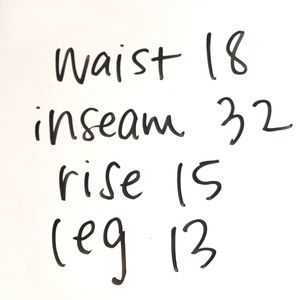 waist 18
inseam 32
rise 15
leg 13